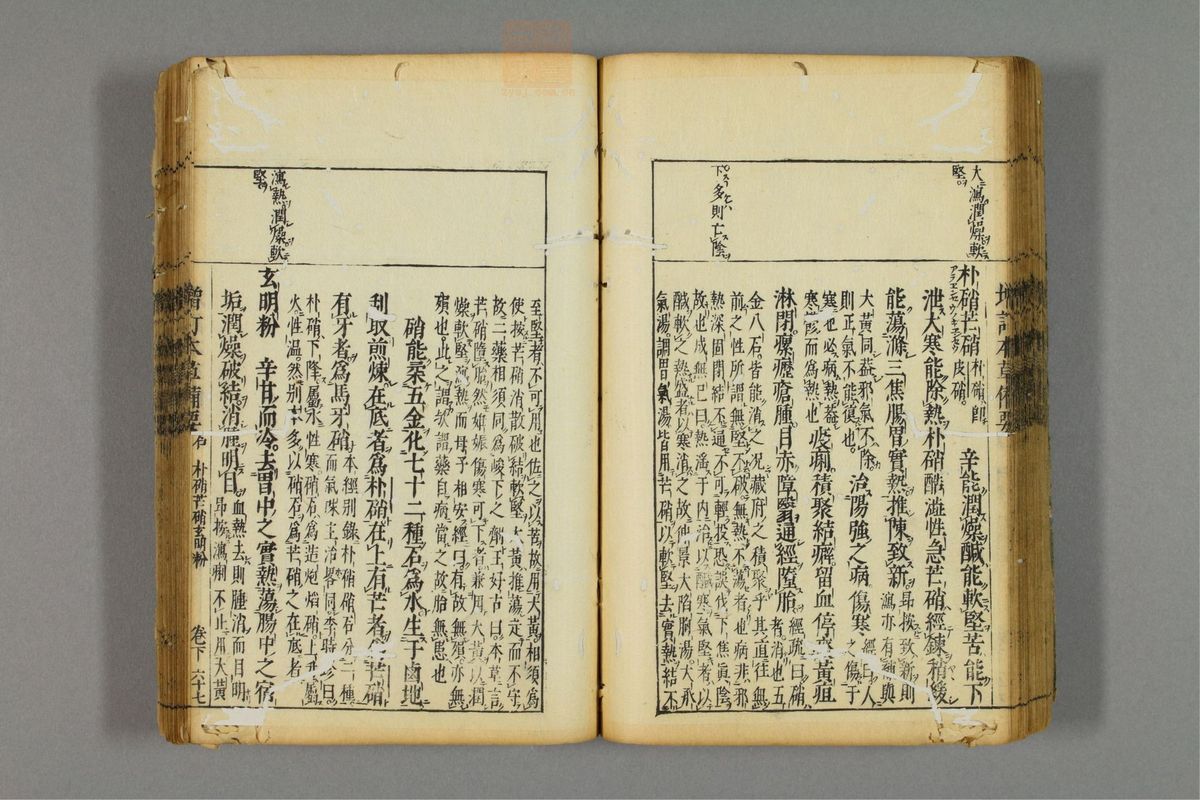 大瀉潤燥軟
堅
下多則亡陰
朴硝芒硝 朴硝卽皮硝 辛能潤燥鹹能軟堅苦能下
泄大寒能除熱朴硝酷澁性急芒硝經錬稍緩
能蕩滌三焦腸胃實熱推陳致新 昂按致新則瀉亦有補與
大黃同蓋邪氣不除則正氣不能復也 治陽強之病傷寒 經曰人之傷于
寒也必病熱蓋寒鬱而為熱也 疫痢積聚結癖留血停痰黃疸
淋閉瘰癧瘡腫目赤障翳通經墮胎 經疏曰硝者消也五
金八石皆能消之况藏府之積聚乎其直往無
前之性所謂無堅不破無熱不蕩者也病非邪
熱深固閉結不通不可輕投恐誤伐下焦眞陰
故也成無已曰熱滛于内治以鹹寒氣堅者以
鹹軟之熱盛者以寒消之故仲景大陷胸湯大承
氣湯調胃氣湯皆用芒硝以軟堅去實熱結不
至堅者不可用也佐之以苦故用大黃相須為
使按芒硝消散破結軟堅大黃推蕩走而不守
故二藥相須同為峻下之劑王好古曰本草言
芒硝墮胎然妊娠傷寒可下者兼用大黃以潤
燥軟堅瀉熱而母子相安經曰有故無殞亦無
殞也此之謂歟謂藥自病當之故胎無患也
硝能柔五金化七十二種石為水生于鹵地
刮取煎煉在底者為朴硝在上有芒者為芒硝
有牙者為馬牙硝 本經別錄朴硝硝石分二種而氣味主治畧同李時珍曰
朴硝下降屬水性寒硝石為造炮焰硝上升屬
火性温然别本多以硝石為芒硝之在底者
瀉熱潤燥軟
堅
玄明粉 辛甘而冷去胃中之實熱蕩腸中之宿
垢潤燥破結消腫明目 血熱去則腫消而目明昂按瀉痢不止用大黃
增訂本草備要 石 朴硝芒硝玄明粉 卷下 六十七